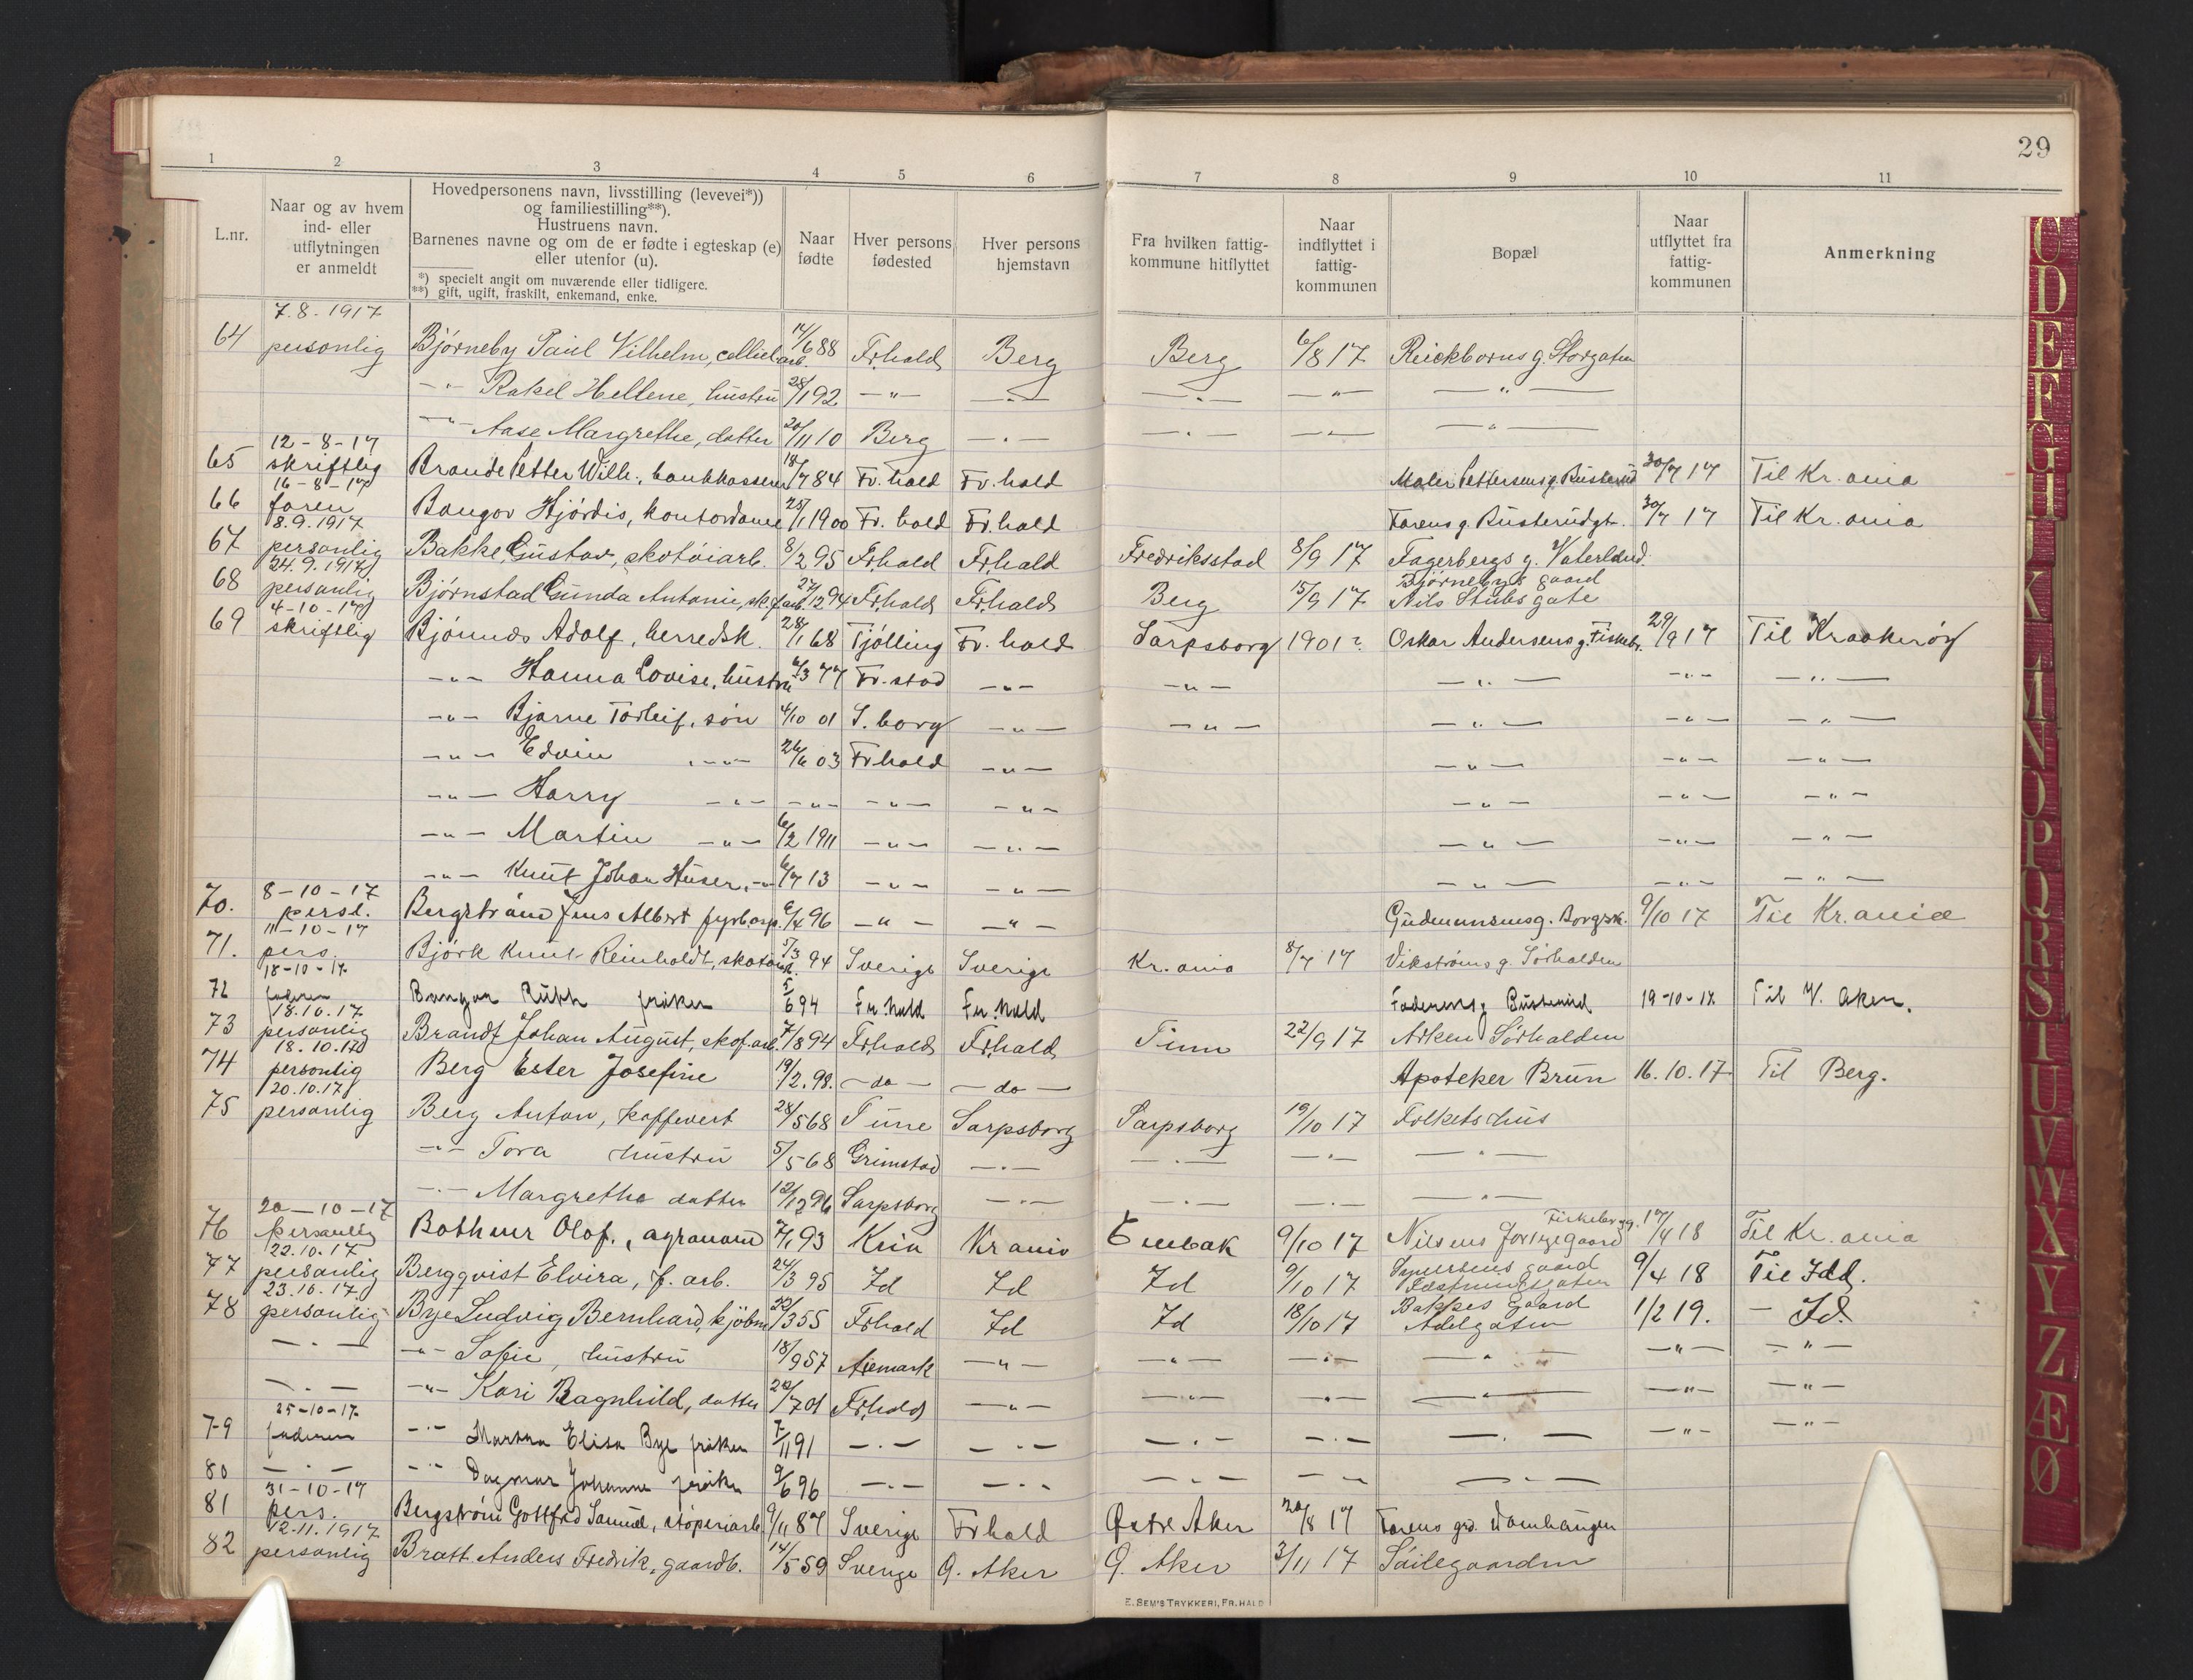 29
1 2 3 4 5 6 7 8 9 10 11
L.nr.
Naar og av hvem
ind- eller
utflytningen
er anmeldt
Hovedpersonens navn, livsstilling (levevei*))
og familiestilling**).
Hustruens navn.
Barnenes navne og om de er fødte i egteskap (e)
eller utenfor (u).
*) specielt angit om nuværende eller tidligere.
**) gift, ugift, fraskilt, enkemand, enke.
Naar
fødte
Hver persons
fødested
Hver persons
hjemstavn
Fra hvilken fattig-
kommune hitflyttet
Naar
indflyttet i
fattig-
kommunen
Bopæl
Naar
utflyttet fra
fattig-
kommunen
Anmerkning
7.8.1917
64 personlig Bjørneby Paul Vilhelm, arb. 14/6 88 Fr.hald Berg Berg 6/8 17 Storgaten
-"- Rakel Hellene, hustru 28/1 92 -"- -"- -"- -"- -"-
-"- Aase Margrethe, datter 20/11 10 Berg -"- -"- -"- -"-
12-8-17
65 skriftlig Brande Petter Wilh., bankkasserer 18/7 84 Fr.hald Fr.hald Maler Pettersens g. Busterud 30/7 17 Til Kr.ania
16-8-17
66 faren Bangor Hjørdis, kontordame 25/1 1900 Fr.hald Fr.hald Farens g. Busterudgt. 30/7 17 Til Kr.ania
8.9.1917
67 personlig Bakke, Gustav, skotøiarb. 8/2 95 Fr.hald Fr.hald Fredriksstad 8/9 17 Fagerbergs g. Vaterland
24.9.1917
68 personlig Bjørnstad Gunda Antonie, sk.f.arb. 27/12 94 Fr.hald Fr.hald Berg 15/9 17 Bjørnebyes gaard
Nils Stubs gate
4-10-17
69 skriftlig Adolf, herredsk. 28/1 68 Tjølling Fr.hald Sarpsborg 1901? Oskar Andersens g. Fiskebr. 29/9 17 Til Kraakerøy
-"- Hanna Lovise, hustru 6/3 77 Fr.stad -"- -"- -"- -"- -"-
-"- Bjarne Torleif, søn 4/10 01 S.borg -"- -"- -"- -"- -"-
-"- Edvin -"- 26/6 03 Fr.hald -"- -"- -"- -"-
-"- Harry -"- -"- -"- -"- -"- -"- -"-
-"- Martin -"- 6/2 1911 -"- -"- -"- -"- -"-
-"- Knut Johan Huser, -"- 6/7 13 -"- -"- -"- -"- -"-
8-10-17
70. persl. Bergstrøm Jens Albert 9/4 96 -"- -"- Gudmunsens g. Borgsk. 9/10 17 Til Kr.ania
11-10-17
71. pers. Bjørk Knut Reinholdt, 5/3 94 Sverige Sverige Kr.ania 8/7 17 Vikstrøms g. Sørhalden
18-10-17
72 faderen Bangor Ruth frøken 5/6 94 Fr.hald Fr.hald Faderens g. Busterud 19-10-17 Til V. Aker.
18.10.17
73 personlig Brandt Johan August, skof.arb. 7/8 94 Fr.hald Fr.hald Tinn 22/9 17 Arken Sørhalden
18.10.17
74 personlig Berg Ester Josefine 19/2.98. -do- -do- Apoteker Brun 16.10.17 Til Berg.
20.10.17
75 personlig Berg Anton, kaffevert 28/5 68 Tune Sarpsborg Sarpsborg 19/10 17 Folkets hus
-"- Tora hustru 5/5 68 Grimstad -"- -"- -"- -"-
-"- Margrethe datter 12/12 96 Sarpsborg -"- -"- -"- -"-
20-10-17
76 personlig Bothner Olof., agronom 7/1 93 Kria Kr ania Enebak 9/10 17 Nilsens gaard Fiskebrygg. 17/4 18 Til Kr.ania
22.10.17
77 personlig Bergqvist Elvira, f. arb. 24/3 95 Id Id Id 9/10 17 gaard
Fæstningsgaten 9/4 18 Til Idd.
23.10.17
78 personlig Bye Ludvig Bernhard, kjøbm 22/3 55 Fr.hald Id Id 18/10 17 Bakkes Gaard
Adelgaten 1/2 19. - Id.
-"- -"- Sofie, hustru 18/9 57 Aremark -"- -"- -"- -"- -"- -"-
-"- -"- Kari Ragnhild, datter 22/7 01 Fr.hald -"- -"- -"- -"- -"- -"-
25-10-17
79 faderen -"- Martha Elisa Bye frøken 7/11 91 -"- -"- -"- -"- -"- -"- -"-
80 -"- -"- Dagmar Johanne frøken 9/6 96 -"- -"- -"- -"- -"-
31-10-17
81 pers. Bergstrøm Gottfred Samuel, støperiarb. 9/11 87 Sverige Fr.hald Østre Aker 20/8 17 Farens grd. Damhaugen
12.11.1917
82 personlig Bratt Anders Fredrik, gaardb. 14/5 59 Sverige Ø. Aker Ø. Aker 3/11 17 Søilegaarden
E. SEM'S TRYKKERI, FR.HALD
C D E F G H J K L M N O P Q R S T U V W X Y Z Æ Ø